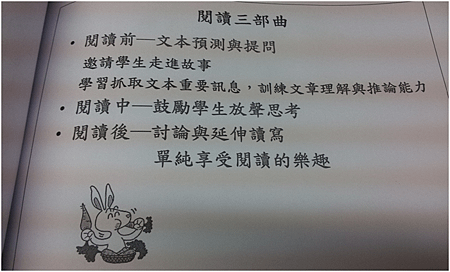 閱讀三部曲
• 閱讀前—文本預測與提問
邀請學生走進故事
學習抓取文本重要訊息，訓練文章理解與推論能力
• 閱讀中—鼓勵學生放聲思考
• 閱讀後—討論與延伸讀寫
單純享受閱讀的樂趣